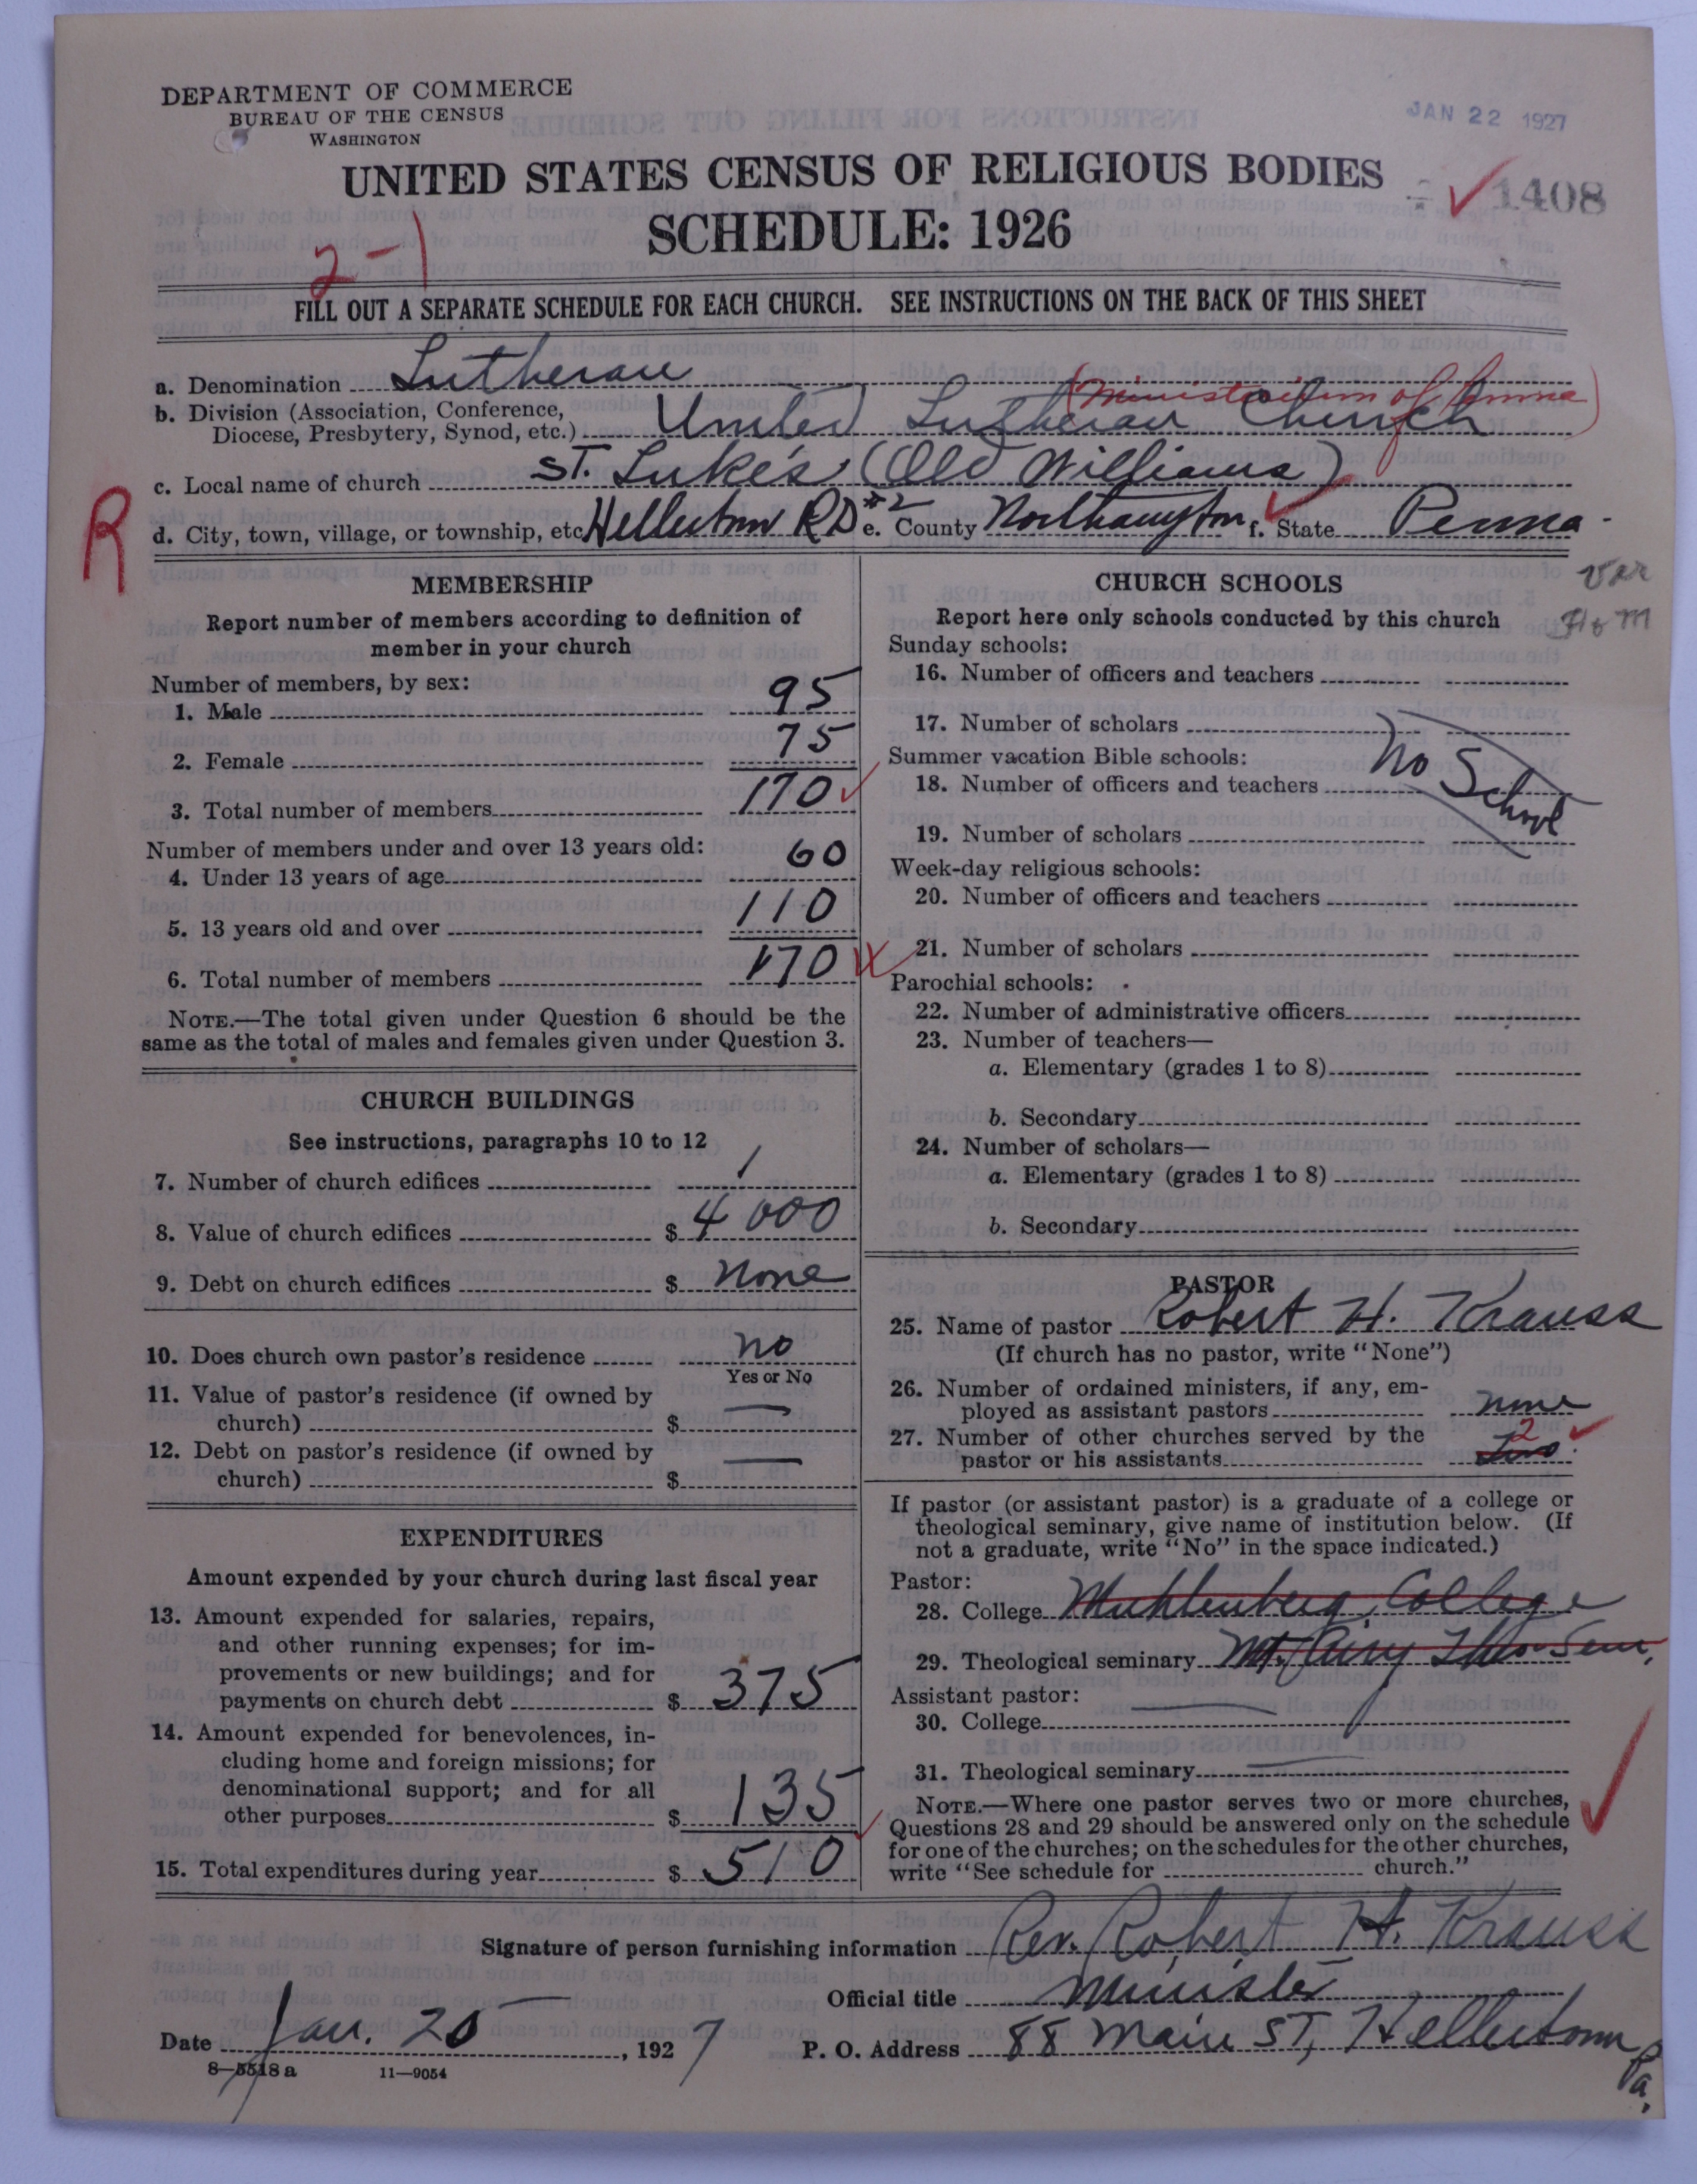 DEPARTMENT OF COMMERCE
BUREAU OF THE CENSUS
WASHINGTON
JAN 22 1927
UNITED STATES CENSUS OF RELIGIOUS BODIES
1408
SCHEDULE: 1926
2-1
FILL OUT A SEPARATE SCHEDULE FOR EACH CHURCH. SEE INSTRUCTIONS ON THE BACK OF THIS SHEET
a. Denomination Lutheran
(Ministerium of Penna)
b. Division (Association, Conference,
Diocese, Presbytery, Synod, etc.) United Lutheran Church
c. Local name of church St. Luke's (Old Williams)
R
d. City, town, village, or township, etc. Hellertown RD #2 e. County Northampton f. State Penna.
MEMBERSHIP
Report number of members according to definition of
member in your church
Number of members, by sex:
1. Male 95
2. Female 75
3. Total number of members 170
Number of members under and over 13 years old:
4. Under 13 years of age 60
5. 13 years old and over 110
6. Total number of members 170
NOTE.—The total given under Question 6 should be the
same as the total of males and females given under Question 3.
CHURCH BUILDINGS
See instructions, paragraphs 10 to 12
7. Number of church edifices 1
8. Value of church edifices $ 4000
9. Debt on church edifices $ None
10. Does church own pastor's residence no
Yes or No
11. Value of pastor's residence (if owned by
church) $ —
12. Debt on pastor's residence (if owned by
church) $ —
EXPENDITURES
Amount expended by your church during last fiscal year
13. Amount expended for salaries, repairs,
and other running expenses; for im-
provements or new buildings; and for
payments on church debt $ 375
14. Amount expended for benevolences, in-
cluding home and foreign missions; for
denominational support; and for all
other purposes $ 135
15. Total expenditures during year $ 510
CHURCH SCHOOLS
Ver
Report here only schools conducted by this church
Sunday schools:
16. Number of officers and teachers
17. Number of scholars
Summer vacation Bible schools:
No School
18. Number of officers and teachers
19. Number of scholars
Week-day religious schools:
20. Number of officers and teachers
21. Number of scholars
Parochial schools:
22. Number of administrative officers
23. Number of teachers—
a. Elementary (grades 1 to 8)
b. Secondary
24. Number of scholars—
a. Elementary (grades 1 to 8)
b. Secondary
PASTOR
25. Name of pastor Robert H. Krauss
(If church has no pastor, write "None")
26. Number of ordained ministers, if any, em-
ployed as assistant pastors none
27. Number of other churches served by the
2
pastor or his assistants Two
If pastor (or assistant pastor) is a graduate of a college or
theological seminary, give name of institution below. (If
not a graduate, write "No" in the space indicated.)
Pastor:
28. College Muhlenberg College
29. Theological seminary Mt. Airy Theo. Sem.
Assistant pastor:
30. College
31. Theological seminary
NOTE.—Where one pastor serves two or more churches,
Questions 28 and 29 should be answered only on the schedule
for one of the churches; on the schedules for the other churches,
write "See schedule for church."
Signature of person furnishing information Rev. Robert H. Krauss
Official title Minister
Date Jan. 20, 1927 P. O. Address 88 Main St, Hellertown Pa.
8—5518 a 11—9054